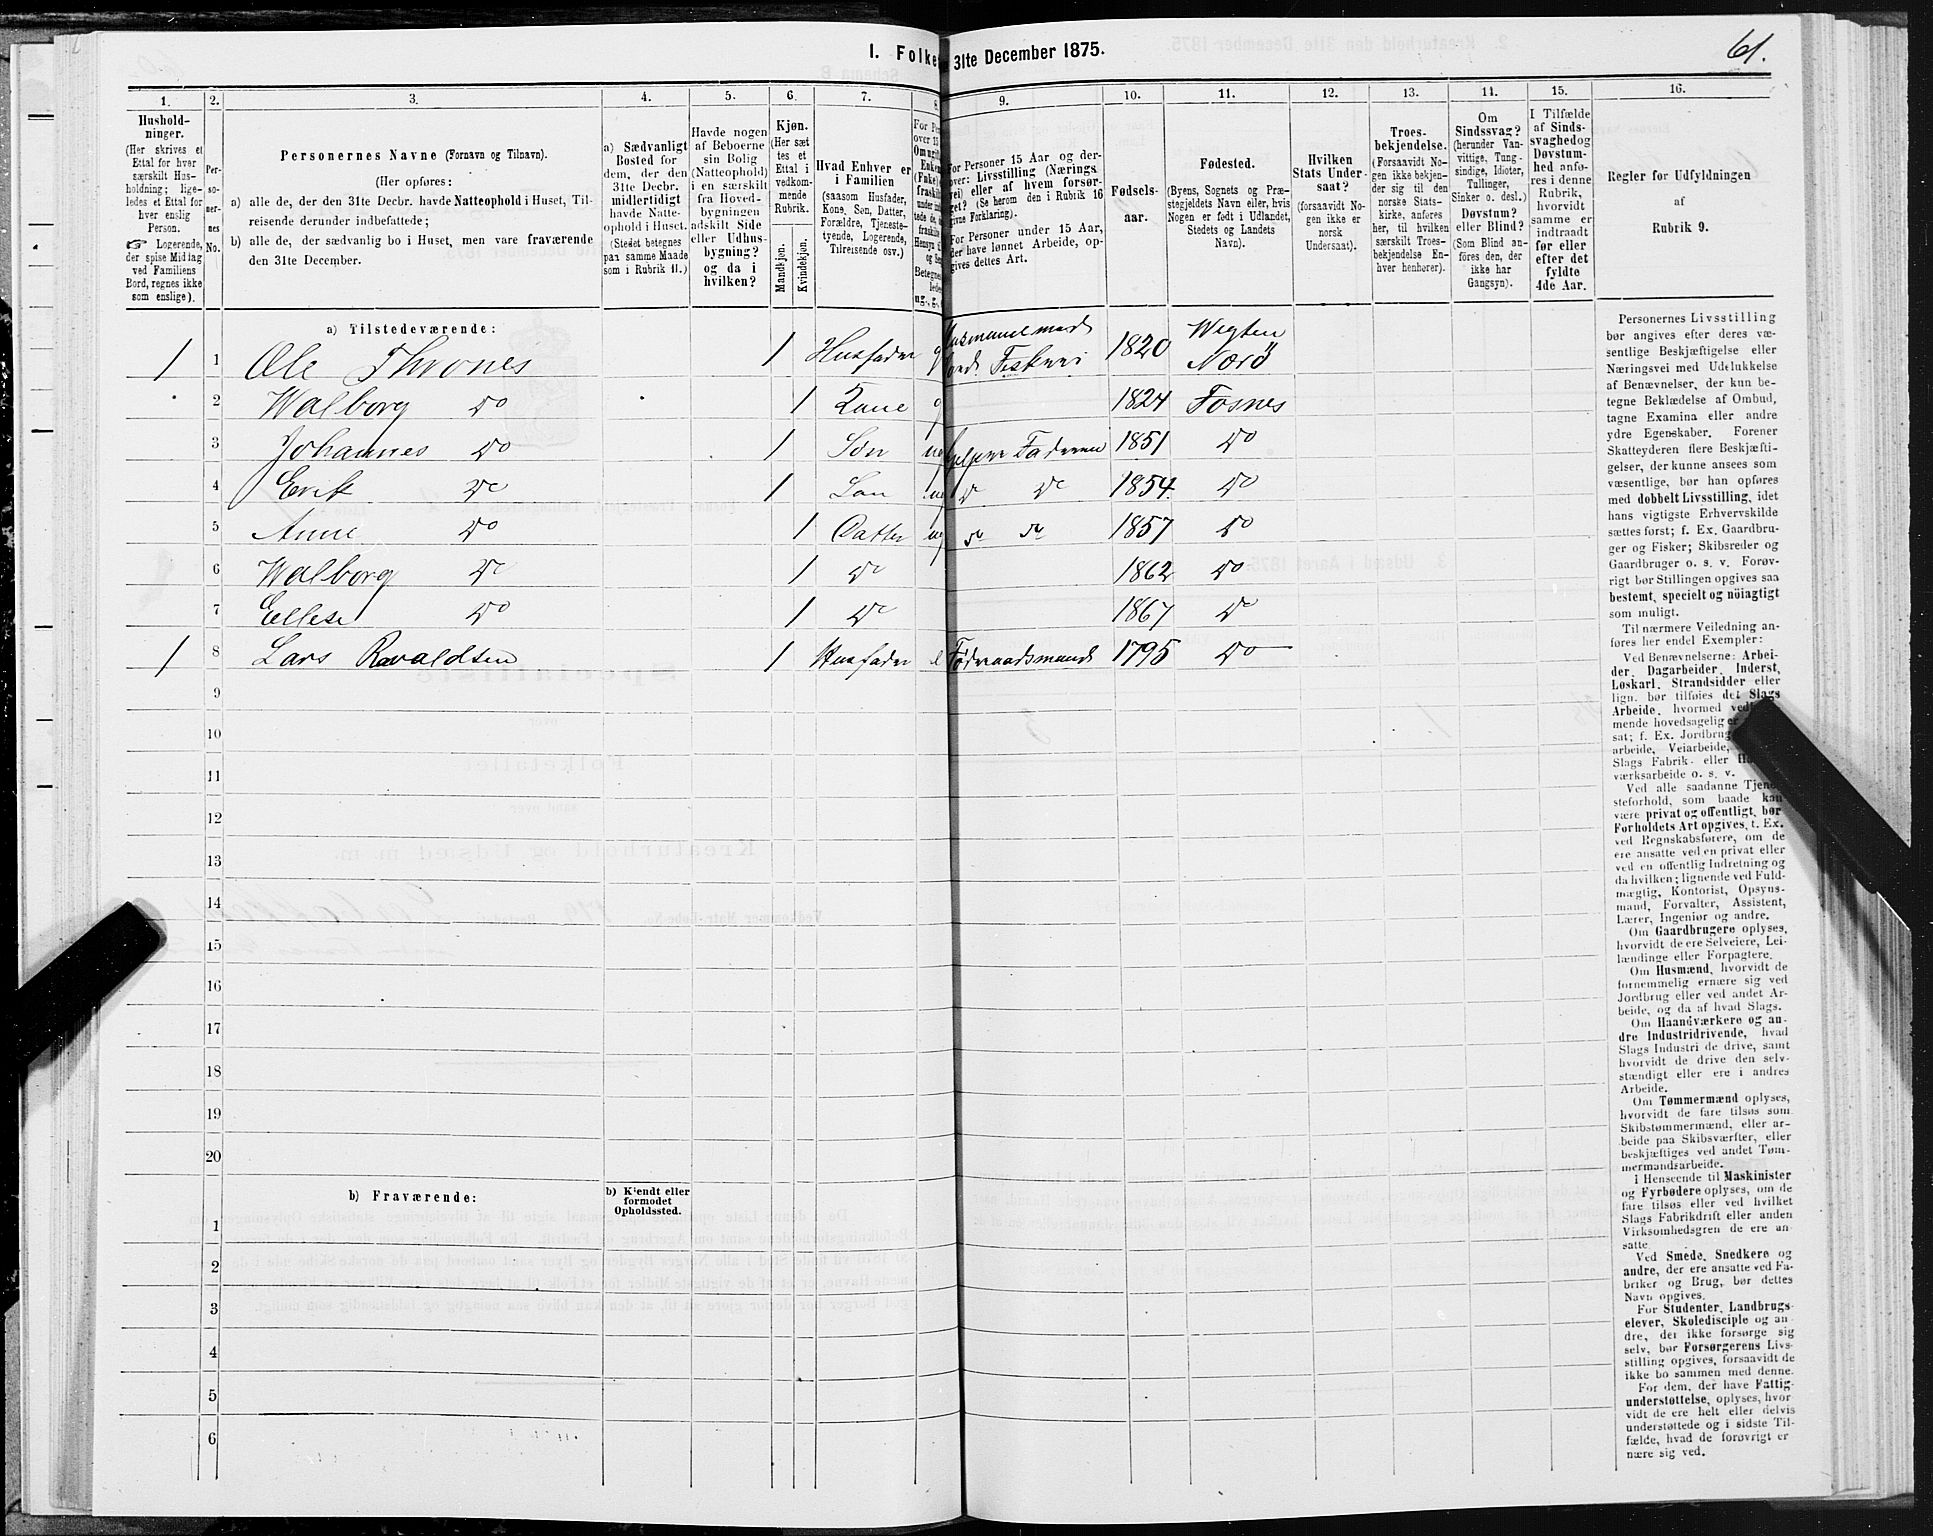 61.
I. Folke
31te December 1875.
1. 2. 3. 4. 5. 6. 7. 8. 9. 10. 11. 12. 13. 14. 15. 16.
Hushold-
ninger.
(Her skrives et
Ettal for hver
særskilt Hus-
holdning; lige-
ledes et Ettal for
hver enslig
Person.
☞ Logerende,
der spise Middag
ved Familiens
Bord, regnes ikke
som enslige).
Per-
so-
ner-
nes
No.
Personernes Navne (Fornavn og Tilnavn).
(Her opføres:
a) alle de, der den 31te Decbr. havde Natteophold i Huset, Til-
reisende derunder indbefattede;
b) alle de, der sædvanlig bo i Huset, men vare fraværende
den 31te December.
a) Sædvanligt
Bosted for
dem, der den
31te Decbr.
midlertidigt
havde Natte-
ophold i Huset.
(Stedet betegnes
paa samme Maade
som i Rubrik 11.)
Havde nogen
af Beboerne
sin Bolig
(Natteophold)
i en særskilt
fra Hoved-
bygningen
adskilt Side
eller Udhus-
bygning?
og da i
hvilken?
Kjøn.
(Her sæt
tes et
Ettal i
vedkom-
mende
Rubrik.
Mandkjøn.
Kvindekjøn.
Hvad Enhver er
i Familien
(saasom Husfader,
Kone, Søn, Datter,
Forældre, Tjeneste-
tyende, Logerende,
Tilreisende osv.)
For Personer 15 Aar og der-
over: Livsstilling (Nærings
vei) eller af hvem forsør-
get? (Se herom den i Rubrik 16
givne Forklaring).
For Personer under 15 Aar,
der have lønnet Arbeide, op-
gives dettes Art.
Fødsels-
aar.
Fødested.
(Byens, Sognets og Præ-
stegjeldets Navn eller, hvis
Nogen er født i Udlandet,
Stedets og Landets
Navn).
Hvilken
Stats Under-
saat?
(forsaavidt No-
gen ikke er
norsk
Undersaat).
Troes-
bekjendelse.
(Forsaavidt No-
gen ikke bekjen-
der sig til den
norske Stats-
kirke, anføres
her, til hvilken
særskilt Troes-
bekjendelse En-
hver henhører).
Om
Sindssvag?
(herunder Van-
vittige, Tung-
sindige, Idioter,
Tullinger,
Sinker o. desl.)
Døvstum?
eller Blind?
(Som Blind an-
føres den, der
ikke har
Gangsyn).
I Tilfælde
af Sinds-
svaghedog
Døvstum-
hed anfø-
res i denne
Rubrik,
hvorvidt
samme er
indtraadt
før eller
efter det
fyldte
4de Aar.
Regler for Udfyldningen
af
Rubrik 9.
a) Tilstedeværende:
1 1 Ole Thrones 1 Husfader g Husmand med Jord. Fiskeri 1820 Wigten Nærö
2 Walborg do 1 Kone g 1824 Fosnes
3 Johannes do 1 Søn ug hjelper Faderen 1851 do
4 Erik do 1 Søn ug do do 1854 do
5 Anne do 1 Datter ug do do 1857 do
6 Walborg do 1 do 1862 do
7 Ellese do 1 do 1867 do
1 8 Lars Ravaldsen 1 Husfader e Föderaadsmand 1795 do
9
10
11
12
13
14
15
16
17
18
19
20
b) Fraværende:
b) Kjendt eller
formodet
Opholdssted.
1
2
3
4
5
6
Personernes Livsstilling
bør angives efter deres væ-
sentlige Beskjæftigelse eller
Næringsvei med Udelukkelse
af Benævnelser, der kun be-
tegne Beklædelse af Ombud,
tagne Examina eller andre
ydre Egenskaber. Forener
Skatteyderen flere Beskjæfti-
gelser, der kunne ansees som
væsentlige, bør han opføres
med dobbelt Livsstilling, idet
hans vigtigste Erhvervskilde
sættes først; f. Ex. Gaardbru-
ger og Fisker; Skibsreder og
Gaardbruger o. s. v. Forøv-
rigt bør Stillingen opgives saa
bestemt, specielt og nöiagtigt
som muligt.
Til nærmere Veiledning an-
føres her endel Exempler:
Ved Benævnelserne: Arbei-
der, Dagarbeider, Inderst,
Løskarl, Strandsidder eller
lign. bør tilføies det Slags
Arbeide, hvormed ved
mende hovedsagelig er
sat; f. Ex. Jordbrug
arbeide, Veiarbeide,
Slags Fabrik- eller
værksarbeide o. s. v.
Ved alle saadanne Tjene
steforhold, som baade kan
være privat og offentligt, bør
Forholdets Art opgives, t. Ex.
ved Regnskabsførere, om de
ere ansatte ved en privat eller
ved en offentlig Indretning og
da hvilken; lignende ved Fuld-
mægtig, Kontorist, Opsyns-
mand, Forvalter, Assistent,
Lærer, Ingeniør og andre.
Om Gaardbrugere oplyses,
hvorvidt de ere Selveiere, Lei-
lændinge eller Forpagtere.
Om Husmænd, hvorvidt de
fornemmelig ernære sig ved
Jordbrug eller ved andet Ar-
beide, og da af hvad Slags.
Om Haandværkere og an-
dre Industridrivende, hvad
Slags Industri de drive, samt
hvorvidt de drive den selv-
stændigt eller ere i andres
Arbeide.
Om Tømmermænd oplyses,
hvorvidt de fare tilsøs som
Skibstømmermænd, eller ar-
beide paa Skibsværfter, eller
beskjæftiges ved andet Tøm-
mermandsarbeide.
I Henseende til Maskinister
og Fyrbødere oplyses, om de
fare tilsøs eller ved hvilket
Slags Fabrikdrift eller anden
Virksomhedsgren de ere an-
satte.
Ved Smede, Snedkere og
andre, der ere ansatte ved Fa-
briker og Brug, bør dettes
Navn opgives.
For Studenter, Landbrugs-
elever, Skoledisciple og an-
dre, der ikke forsørge sig
selv, bør Forsørgerens Livs-
stilling opgives, forsaavidt de
ikke bo sammen med denne.
For dem, der have Fattig-
understøttelse, oplyses, hvor-
vidt de ere helt eller delvis
understøttede og i sidste Til-
fælde, hvad de forøvrigt er
nære sig ved.